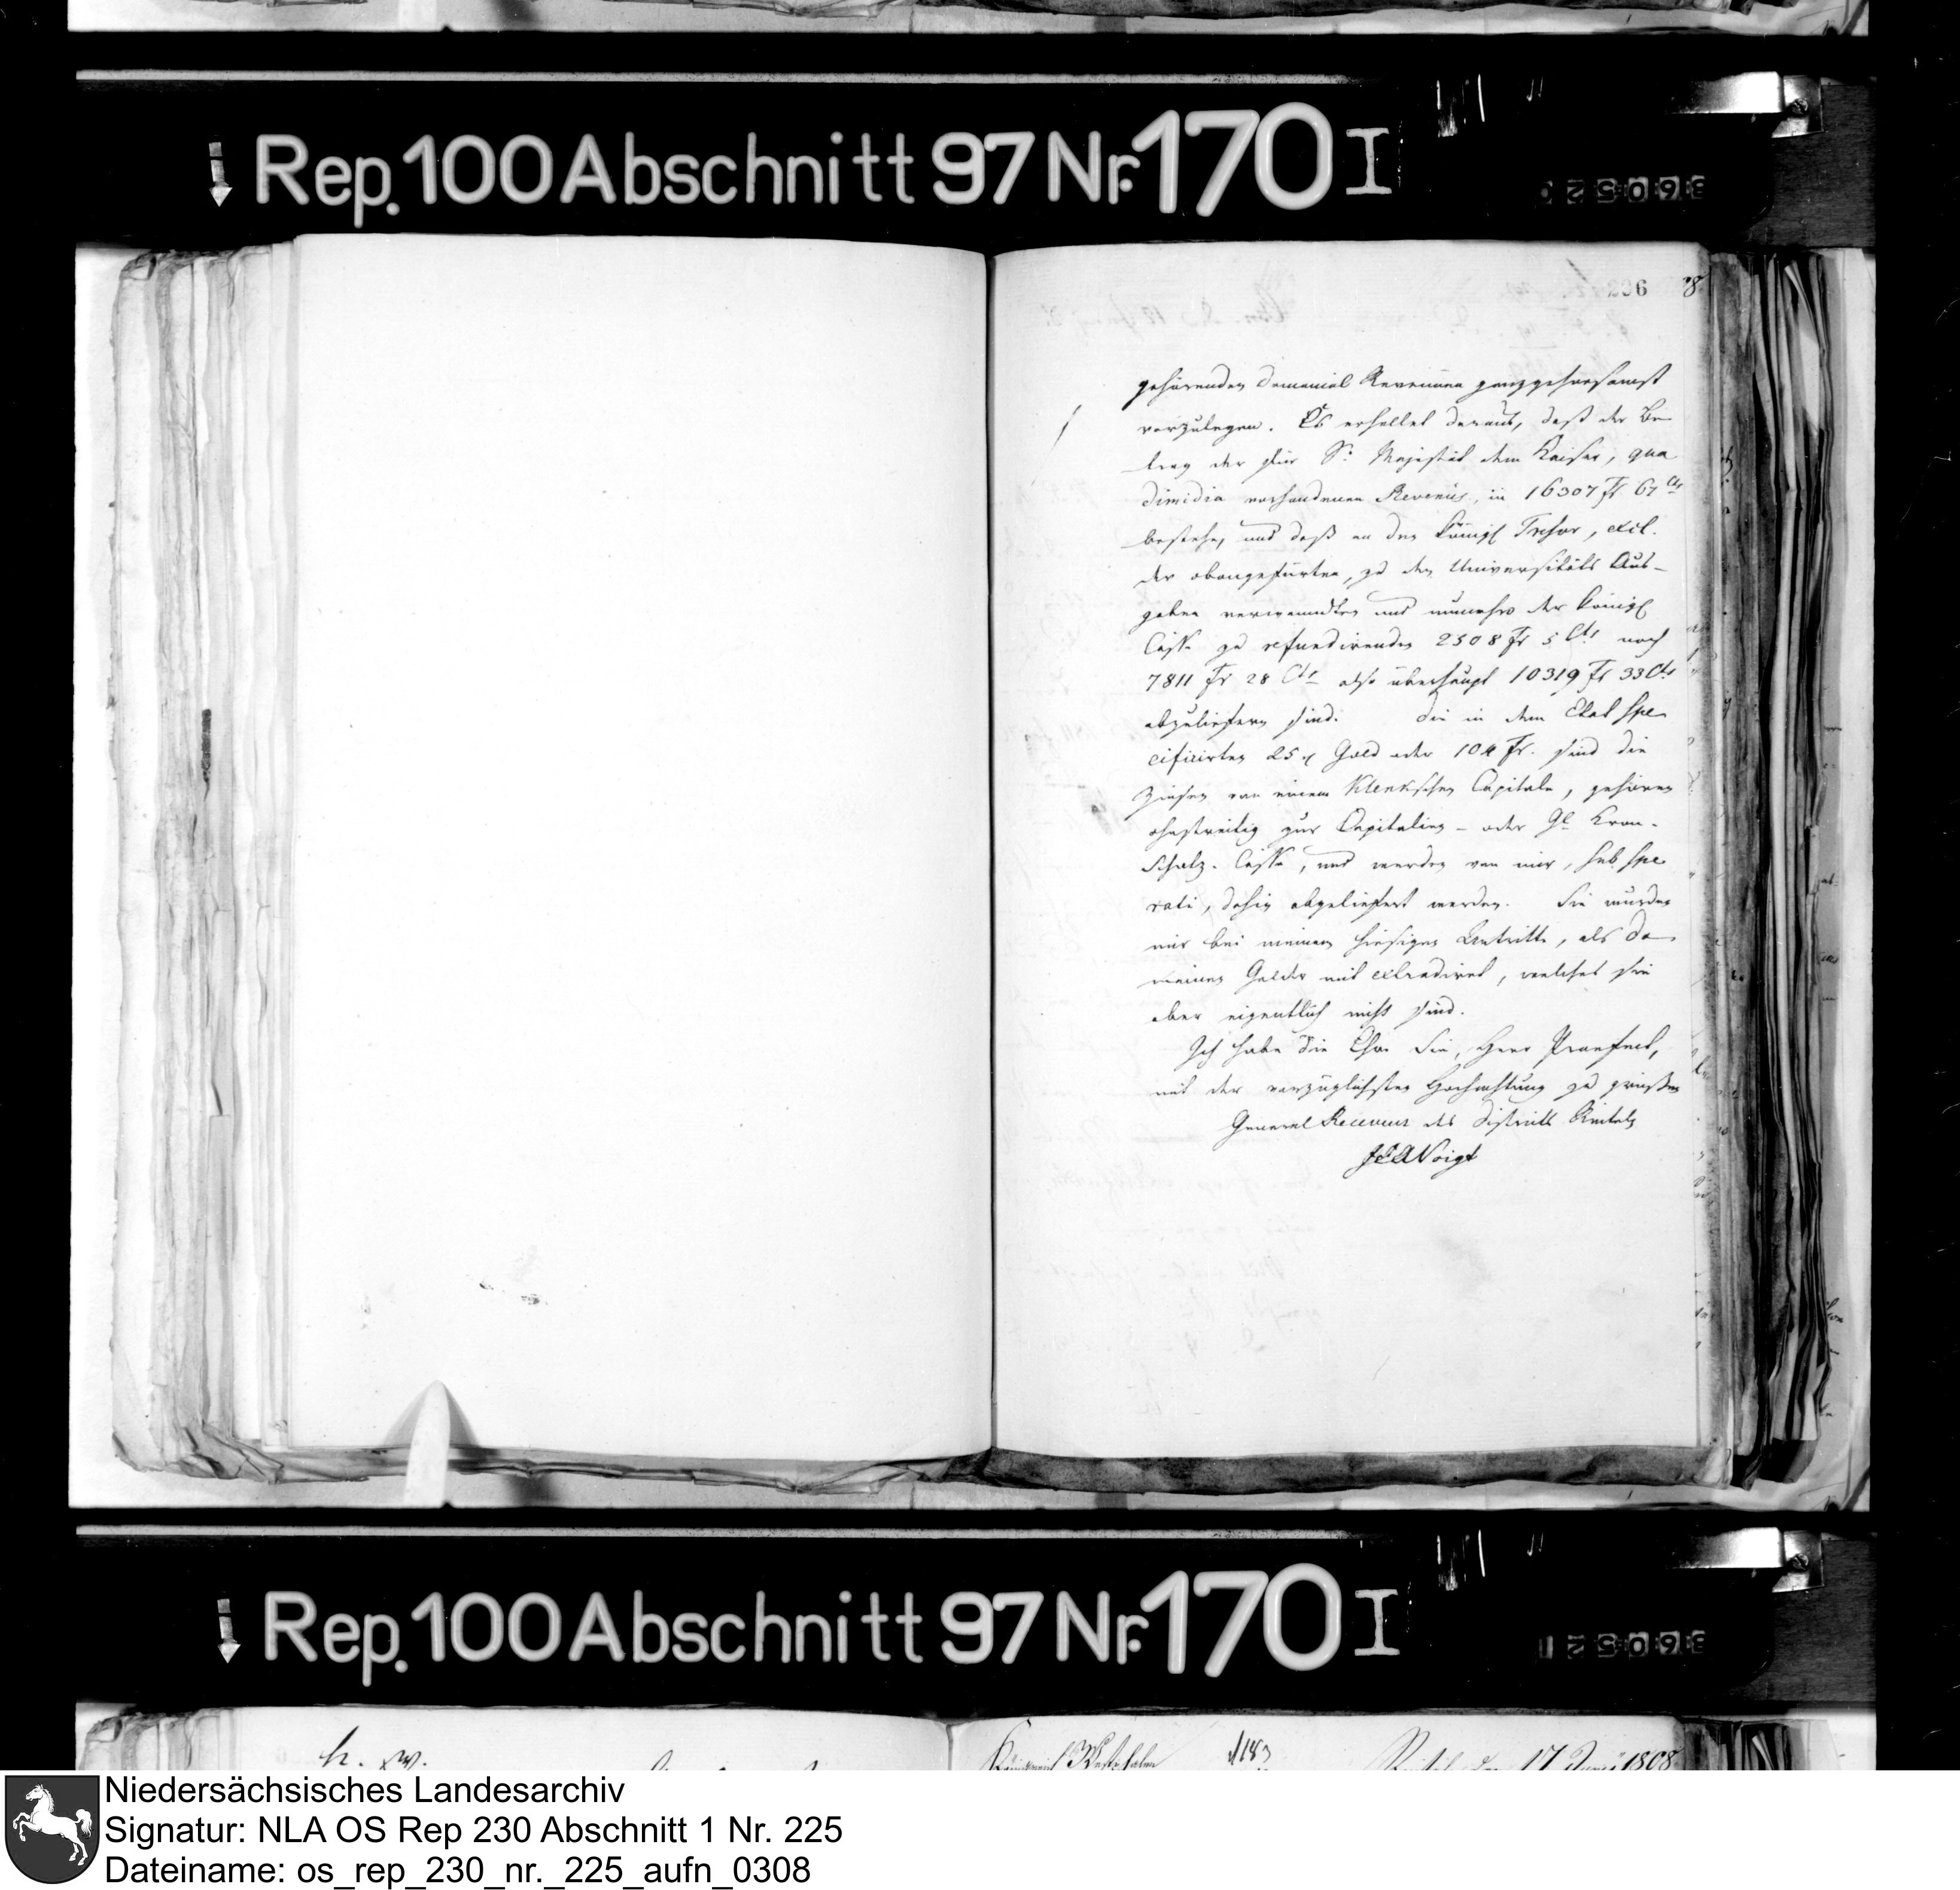 Rep. 100 Abschnitt 97 Nr. 170 I
360520
236
8
gehörenden Domanial Revenuen ganzgehorsamst
vorzulegen. Es erhellet daraus, daß der Be-
trag der für Sr. Majestät dem Kaiser, qua
dimidia vorhandenen Revenüs, in 16307 Fr 67 Cts
bestehe, und daß an den Königl Tresor, excl.
der obangeführten, zu den Universitäts Aus-
gaben verwendten und nunmehro der Königl
Casse zu refundirenden 2508 Fr 5 Cts noch
7811 Fr 28 Cts also überhaupt 10319 Fr 33 Cts
abzuliefern sind. Die in dem Etat spe
cificirten 25 Gold oder 104 Fr. sind die
Zinsen von einem Klenkschen Capitale, gehören
ohnstreitig zur Capitalien- oder Gl Kron-
Schatz-Casse, und werden von mir, sub spe
rati, dahin abgeliefert werden. Sie wurden
mir bei meinem hiesigen Antritte, als Do
mainen Gelder mit extradiret, welches sie
aber eigentlich nicht sind.
Ich habe die Ehre Sie, Herr Praefect,
mit der vorzüglichsten Hochachtung zu grüßen
General Receveur des Districts Rinteln
Voigt
Rep. 100 Abschnitt 97 Nr. 170 I
360521
Königreich Westphalen
Rinteln den 17 Juni 1808
Niedersächsisches Landesarchiv
Signatur: NLA OS Rep 230 Abschnitt 1 Nr. 225
Dateiname: os_rep_230_nr._225_aufn_0308